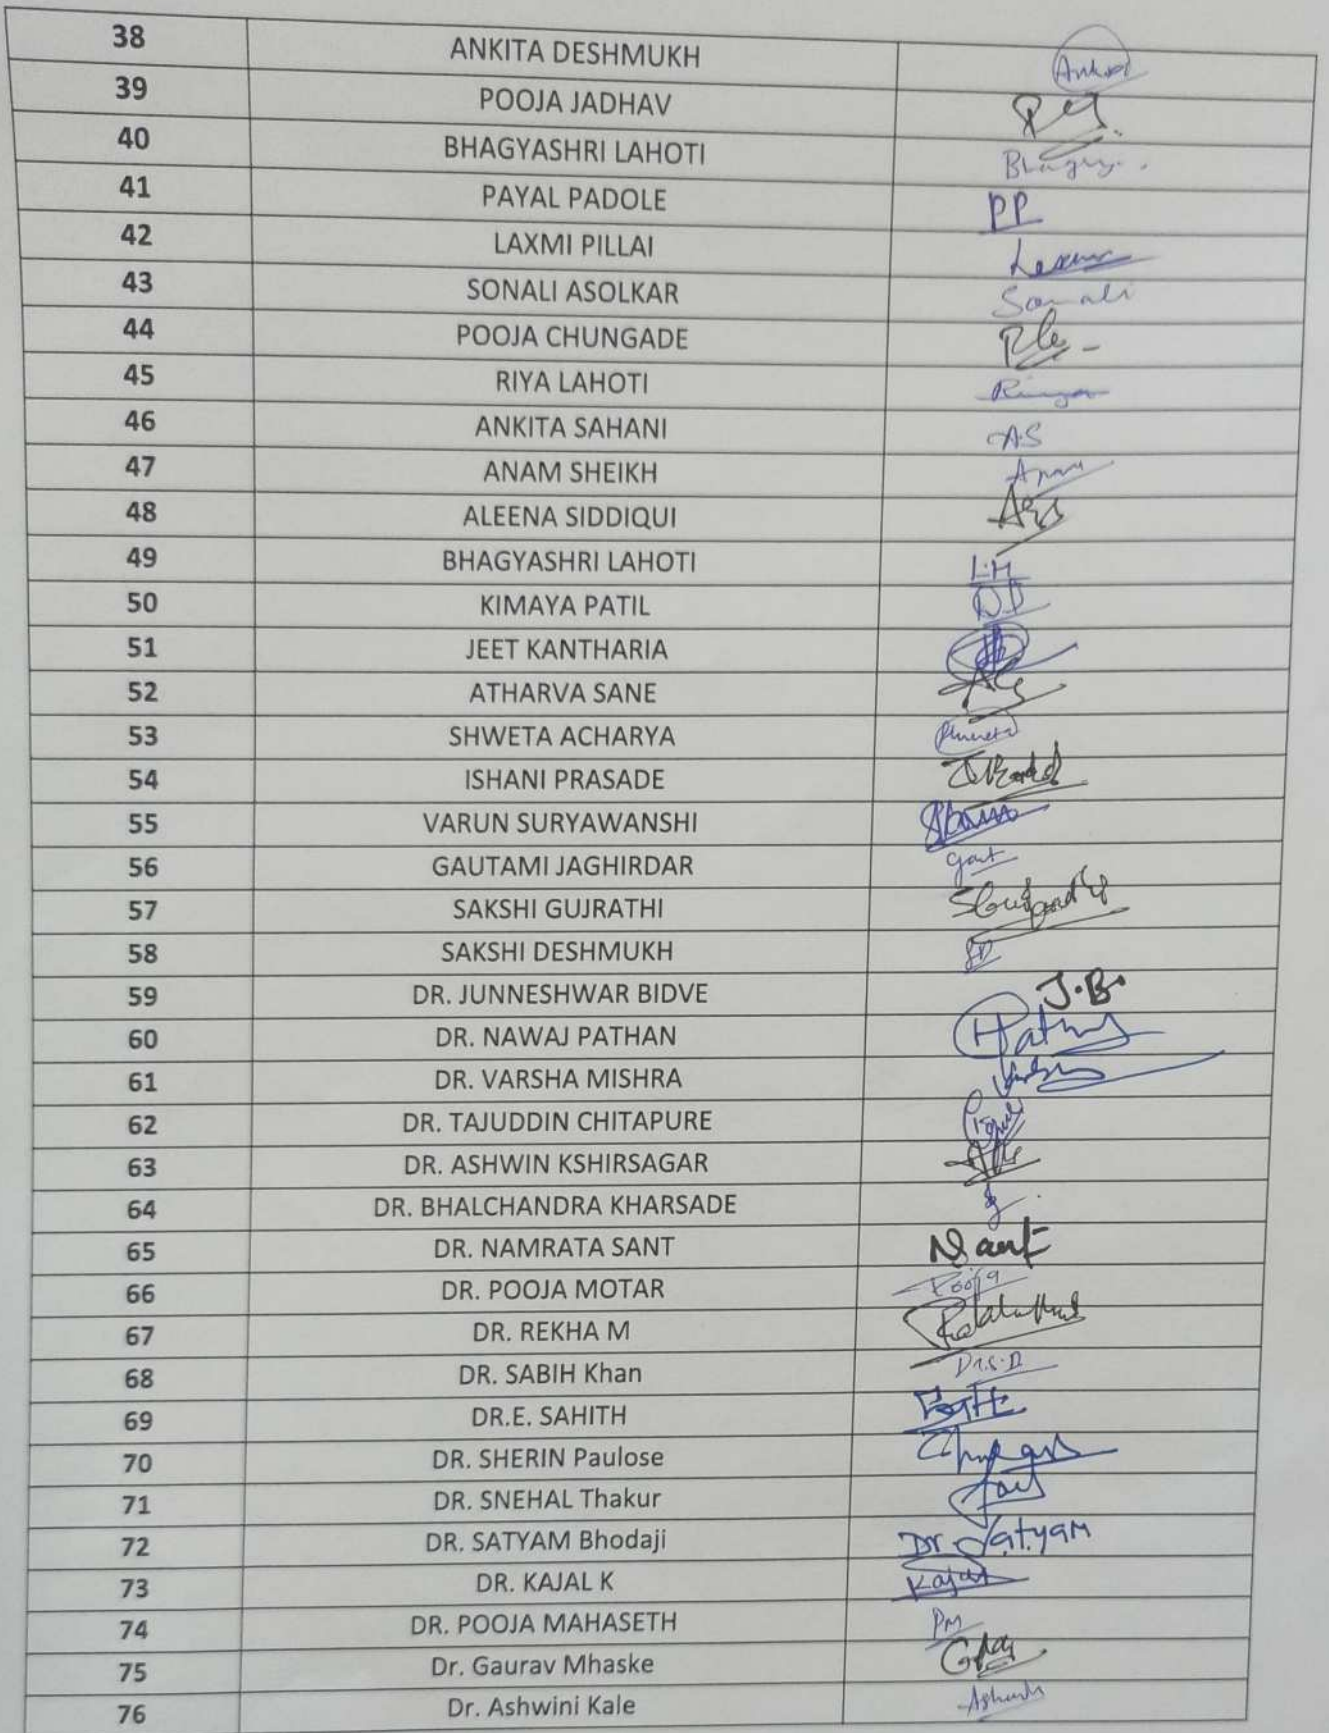 38 ANKITA DESHMUKH
39 POOJA JADHAV
40 BHAGYASHRI LAHOTI
41 PAYAL PADOLE PP
42 LAXMI PILLAI
43 SONALI ASOLKAR Sonali
44 POOJA CHUNGADE
45 RIYA LAHOTI
46 ANKITA SAHANI A.S
47 ANAM SHEIKH
48 ALEENA SIDDIQUI
49 BHAGYASHRI LAHOTI
50 KIMAYA PATIL
51 JEET KANTHARIA
52 ATHARVA SANE
53 SHWETA ACHARYA
54 ISHANI PRASADE
55 VARUN SURYAWANSHI
56 GAUTAMI JAGHIRDAR
57 SAKSHI GUJRATHI
58 SAKSHI DESHMUKH
59 DR. JUNNESHWAR BIDVE J.B.
60 DR. NAWAJ PATHAN
61 DR. VARSHA MISHRA
62 DR. TAJUDDIN CHITAPURE
63 DR. ASHWIN KSHIRSAGAR
64 DR. BHALCHANDRA KHARSADE
65 DR. NAMRATA SANT
66 DR. POOJA MOTAR Pooja
67 DR. REKHA M
68 DR. SABIH Khan
69 DR.E. SAHITH
70 DR. SHERIN Paulose
71 DR. SNEHAL Thakur
72 DR. SATYAM Bhodaji Dr Satyam
73 DR. KAJAL K Kajal
74 DR. POOJA MAHASETH PM
75 Dr. Gaurav Mhaske
76 Dr. Ashwini Kale